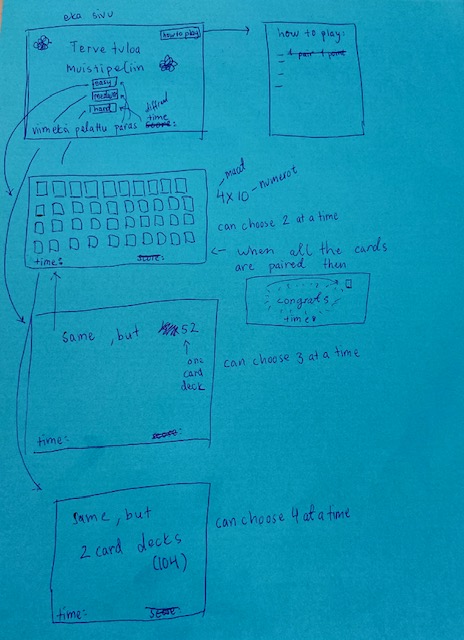 eka sivu
how to play
Tervetuloa
Muistipeliin
easy
medium
hard
different
time
viimeksi pelattu paras score:
how to play:
1 pair 1 point
maat
4 x 10 - numerot
can choose 2 at a time
time:
score:
when all the cards
are paired then
congrats
time:
same, but 52
one
card
deck
can choose 3 at a time
time:
score:
same, but
2 card decks
(104)
can choose 4 at a time
time:
score: